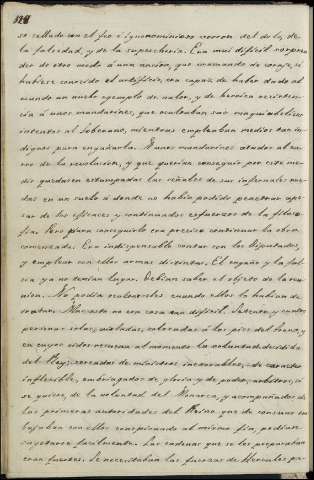 se sellada con el feo é ignominioso borron del dolo, de
la falsedad, y de la supercheria. Era mui dificil sorpren-
der de otro modo á una nacion, que bramando de corage, si
hubiese conocido el artificio, era capaz de haber dado al
mundo un nuevo egemplo de valor, y de heroica resisten-
cia á unos mandarines, que ocultaban sus maquiabelicos
intentos al Soberano, mientras empleaban medios tan in-
dignos para engañarla. A unos mandarines atados al car-
ro de la revolucion, y que querian conseguir por este me-
dio quedasen estampadas las señales de sus infernales rue-
das en un suelo á donde no habia podido penetrar ape-
sar de los eficaces y continuados esfuerzos de la filoso-
fia. Pero para conseguirlo era preciso continuar la obra
comenzada. Era indispensable contar con los Diputados,
y emplear con ellos armas distintas. El engaño y la fala-
cia ya no tenian lugar. Debian saber el objeto de la reu-
nion. No podia ocultarseles cuando ellos la habian de
tratar. Mas esto no era cosa mui dificil. Setenta y cuatro
personas solas, aisladas, colocadas á los pies del trono, y
en cuyos oidos resuena al momento la voluntad decidida
del Rey; cercadas de ministros inexorables, de caracter
inflexible, embriagados de gloria y de poder, arbitros, si
se quiere, de la voluntad del Monarca, y acompañados de
las primeras autoridades del Reino que de consuno tra-
bajaban con ellos conspirando al mismo fin, podian
sugetarse facilmente. Las cadenas que se les preparaban
eran fuertes. Se necesitaban las fuerzas de Hercules pa-